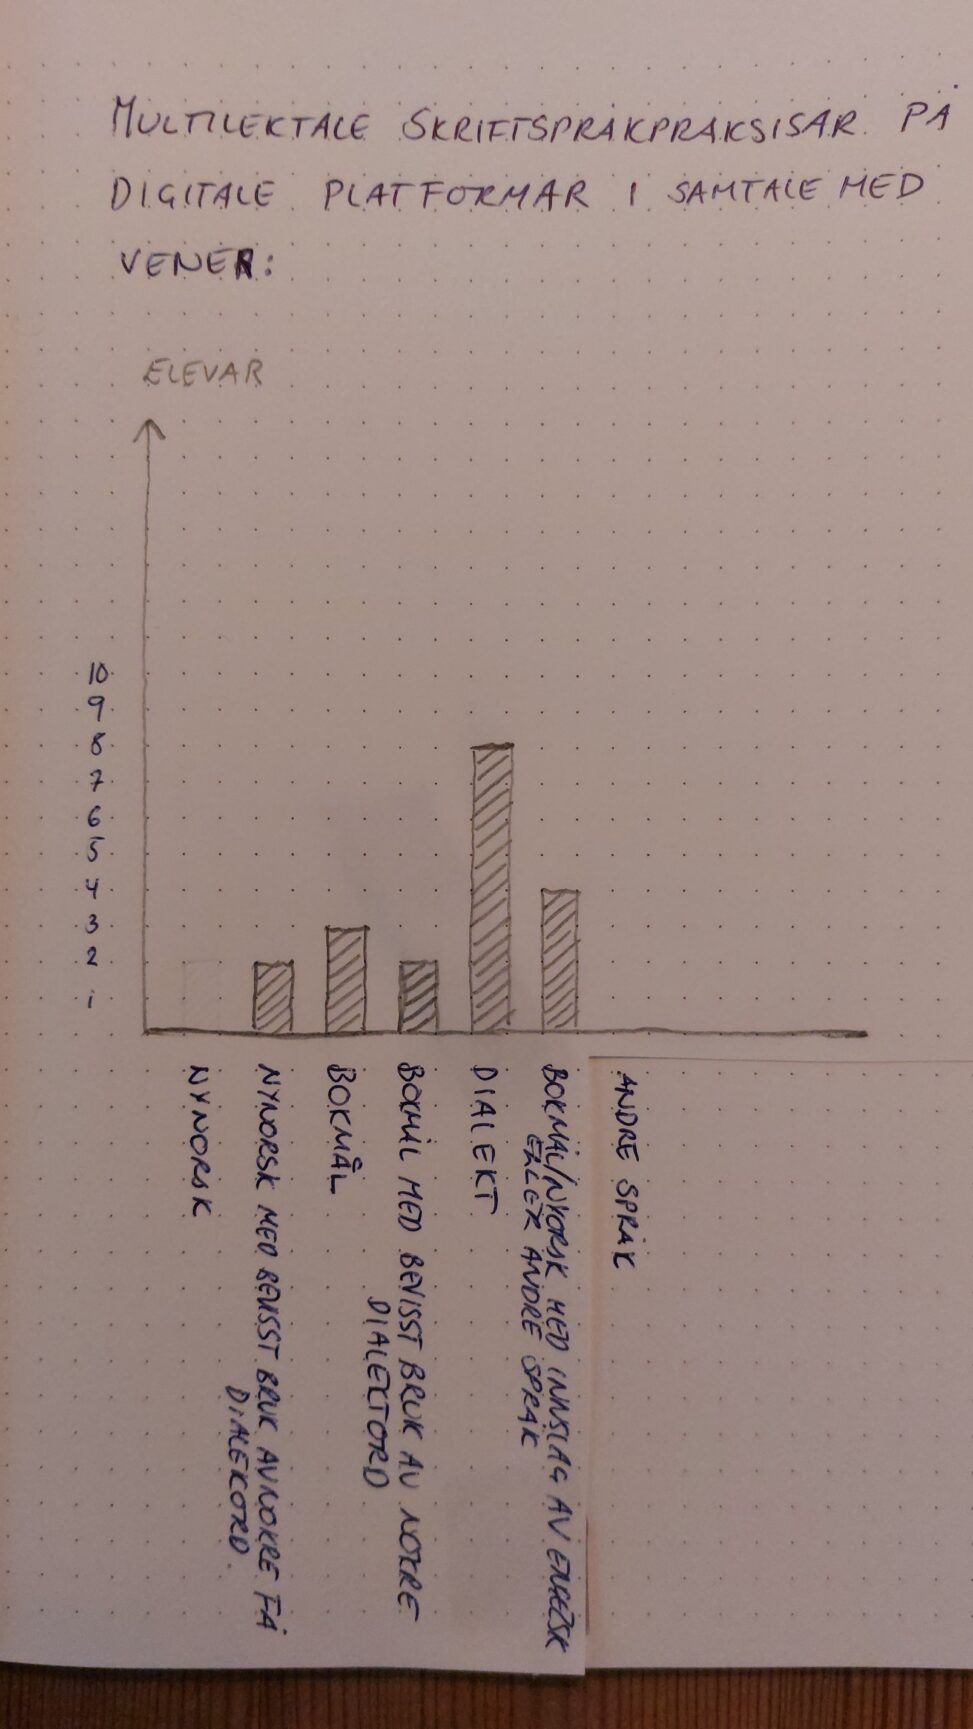 MULTILEKTALE SKRIFTSPRÅKPRAKSISAR PÅ
DIGITALE PLATFORMAR I SAMTALE MED
VENER:
ELEVAR
10
9
8
7
6
5
4
3
2
1
NYNORSK
NYNORSK MED BEVISST BRUK AV NOKRE FÅ
DIALEKORD.
BOKMÅL
BOKMÅL MED BEVISST BRUK AV NOKRE
DIALEKTORD
DIALEKT
BOKMÅL/NYORSK MED INNSLAG AV ENGELSK
ELLER ANDRE SPRÅK
ANDRE SPRÅK